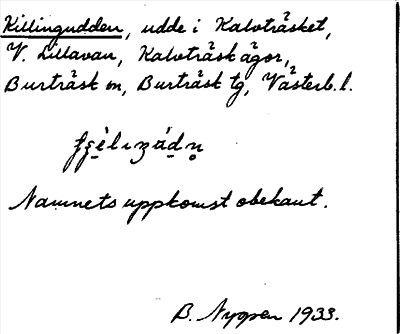 Killingudden, udde i Kalvträsket,
V. Lillavan, Kalvträsk ägor,
Burträsk sn, Burträsk tg, Västerb. l.
Namnets uppkomst obekant.
B. Nygren 1933.